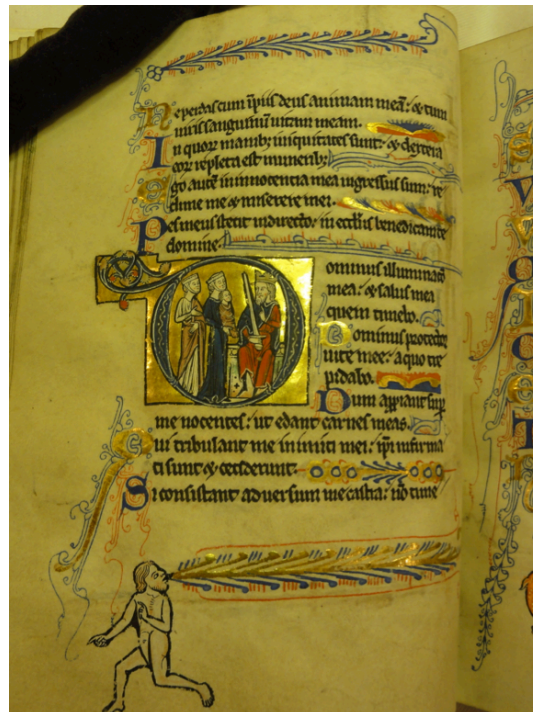 Ne perdas cum īpiis deus animam meā: & cum
uiris sanguinū uitam meam.
In quor manib; iniquitates sunt: & dextera
eor repleta est munerib;
Ego autē in innocentia mea ingressus sum: re
dime me & miserere mei.
Pes meus stetit in directo: in eccl̄iis benedicam te
domine.
Dominus illuminatio
mea: & salus mea
quem timebo.
Dominus protector
uite mee: a quo tre
pidabo.
Dum appiant sup
me nocentes: ut edant carnes meas.
Qui tribulant me inimici mei: ip̄i infirma
ti sunt & ceciderunt.
Si consistant aduersum me castra: nō time